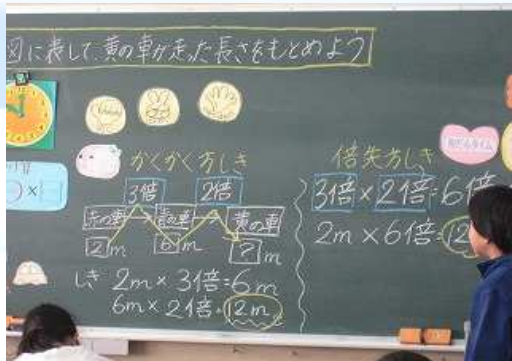 図に表して、黄の車が走った長さをもとめよう
かくかく方しき
3倍 2倍
赤の車 青の車 黄の車
2m 6m ?m
しき 2m×3倍=6m
6m×2倍=12m
倍失方しき
3倍×2倍=6倍
2m×6倍=12